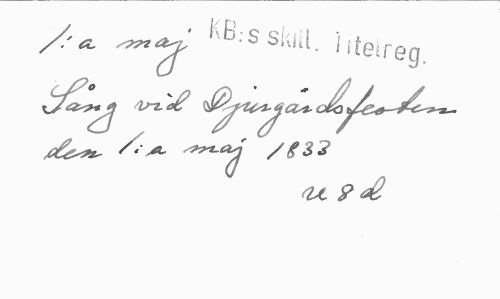 1:a maj KB:s skill. Titelreg.
Sång vid Djurgårdsfesten
den 1:a maj 1833
ve 8 d